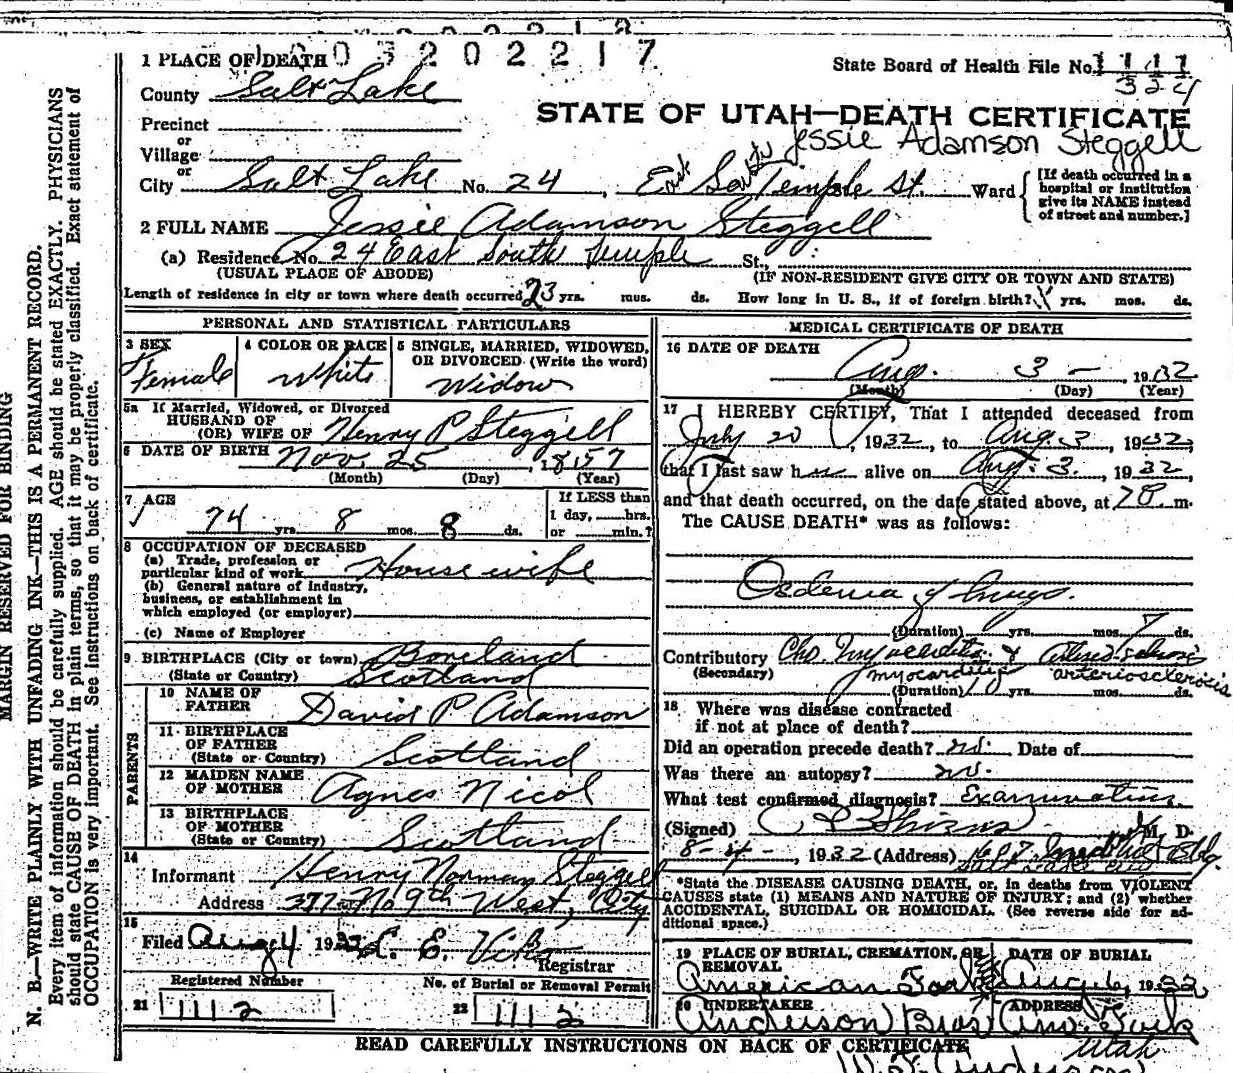 003202217
1 PLACE OF DEATH
State Board of Health File No.
324
County Salt Lake
STATE OF UTAH—DEATH CERTIFICATE
Precinct
or
Jessie Adamson Steggell
Village
or
City Salt Lake No. 24, East South Temple St. Ward
[If death occurred in a hospital or institution give its NAME instead of street and number.]
2 FULL NAME Jessie Adamson Steggell
(a) Residence, No. 24 East South Temple St.,
(USUAL PLACE OF ABODE) (IF NON-RESIDENT GIVE CITY OR TOWN AND STATE)
Length of residence in city or town where death occurred 23 yrs. mos. ds. How long in U. S., if of foreign birth? yrs. mos. ds.
PERSONAL AND STATISTICAL PARTICULARS
3 SEX 4 COLOR OR RACE 5 SINGLE, MARRIED, WIDOWED, OR DIVORCED (Write the word)
Female White Widow
5a If Married, Widowed, or Divorced
HUSBAND OF
(OR) WIFE OF Henry P Steggell
6 DATE OF BIRTH Nov. 25, 1857
(Month) (Day) (Year)
7 AGE If LESS than
1 day, hrs.
74 yrs. 8 mos. 8 ds. or min.?
8 OCCUPATION OF DECEASED
(a) Trade, profession or
particular kind of work Housewife
(b) General nature of industry,
business, or establishment in
which employed (or employer)
(c) Name of Employer
9 BIRTHPLACE (City or town) Boreland
(State or Country) Scotland
PARENTS
10 NAME OF
FATHER David P Adamson
11 BIRTHPLACE
OF FATHER
(State or Country) Scotland
12 MAIDEN NAME
OF MOTHER Agnes Nicol
13 BIRTHPLACE
OF MOTHER
(State or Country) Scotland
14
Informant Henry Norman Steggell
Address 377 No 9th West, City
15
Filed Aug 4 1932 Registrar
Registered Number No. of Burial or Removal Permit
21 1112 22 1112
MEDICAL CERTIFICATE OF DEATH
16 DATE OF DEATH
Aug. 3 - 1932
(Month) (Day) (Year)
17 I HEREBY CERTIFY, That I attended deceased from
July 20, 1932, to Aug. 3, 1932,
that I last saw her alive on Aug. 3, 1932,
and that death occurred, on the date stated above, at m.
The CAUSE DEATH* was as follows:
Oedema of lungs.
(Duration) yrs. mos. 7 ds.
Contributory Cho. Myocarditis &
(Secondary) myocarditis arteriosclerosis
(Duration) yrs. mos. ds.
18 Where was disease contracted
if not at place of death?
Did an operation precede death? no. Date of
Was there an autopsy? no.
What test confirmed diagnosis? Examination
(Signed) M. D.
8-4-, 1932 (Address) Bldg.
*State the DISEASE CAUSING DEATH, or, in deaths from VIOLENT
CAUSES state (1) MEANS AND NATURE OF INJURY; and (2) whether
ACCIDENTAL, SUICIDAL OR HOMICIDAL. (See reverse side for additional space.)
19 PLACE OF BURIAL, CREMATION, OR REMOVAL DATE OF BURIAL
American Fork Aug. 6, 1932
20 UNDERTAKER ADDRESS
Anderson Bros Am. Fork
Utah
READ CAREFULLY INSTRUCTIONS ON BACK OF CERTIFICATE
MARGIN RESERVED FOR BINDING
N. B.—WRITE PLAINLY WITH UNFADING INK—THIS IS A PERMANENT RECORD.
Every item of information should be carefully supplied. AGE should be stated EXACTLY. PHYSICIANS
should state CAUSE OF DEATH in plain terms, so that it may be properly classified. Exact statement of
OCCUPATION is very important. See instructions on back of certificate.